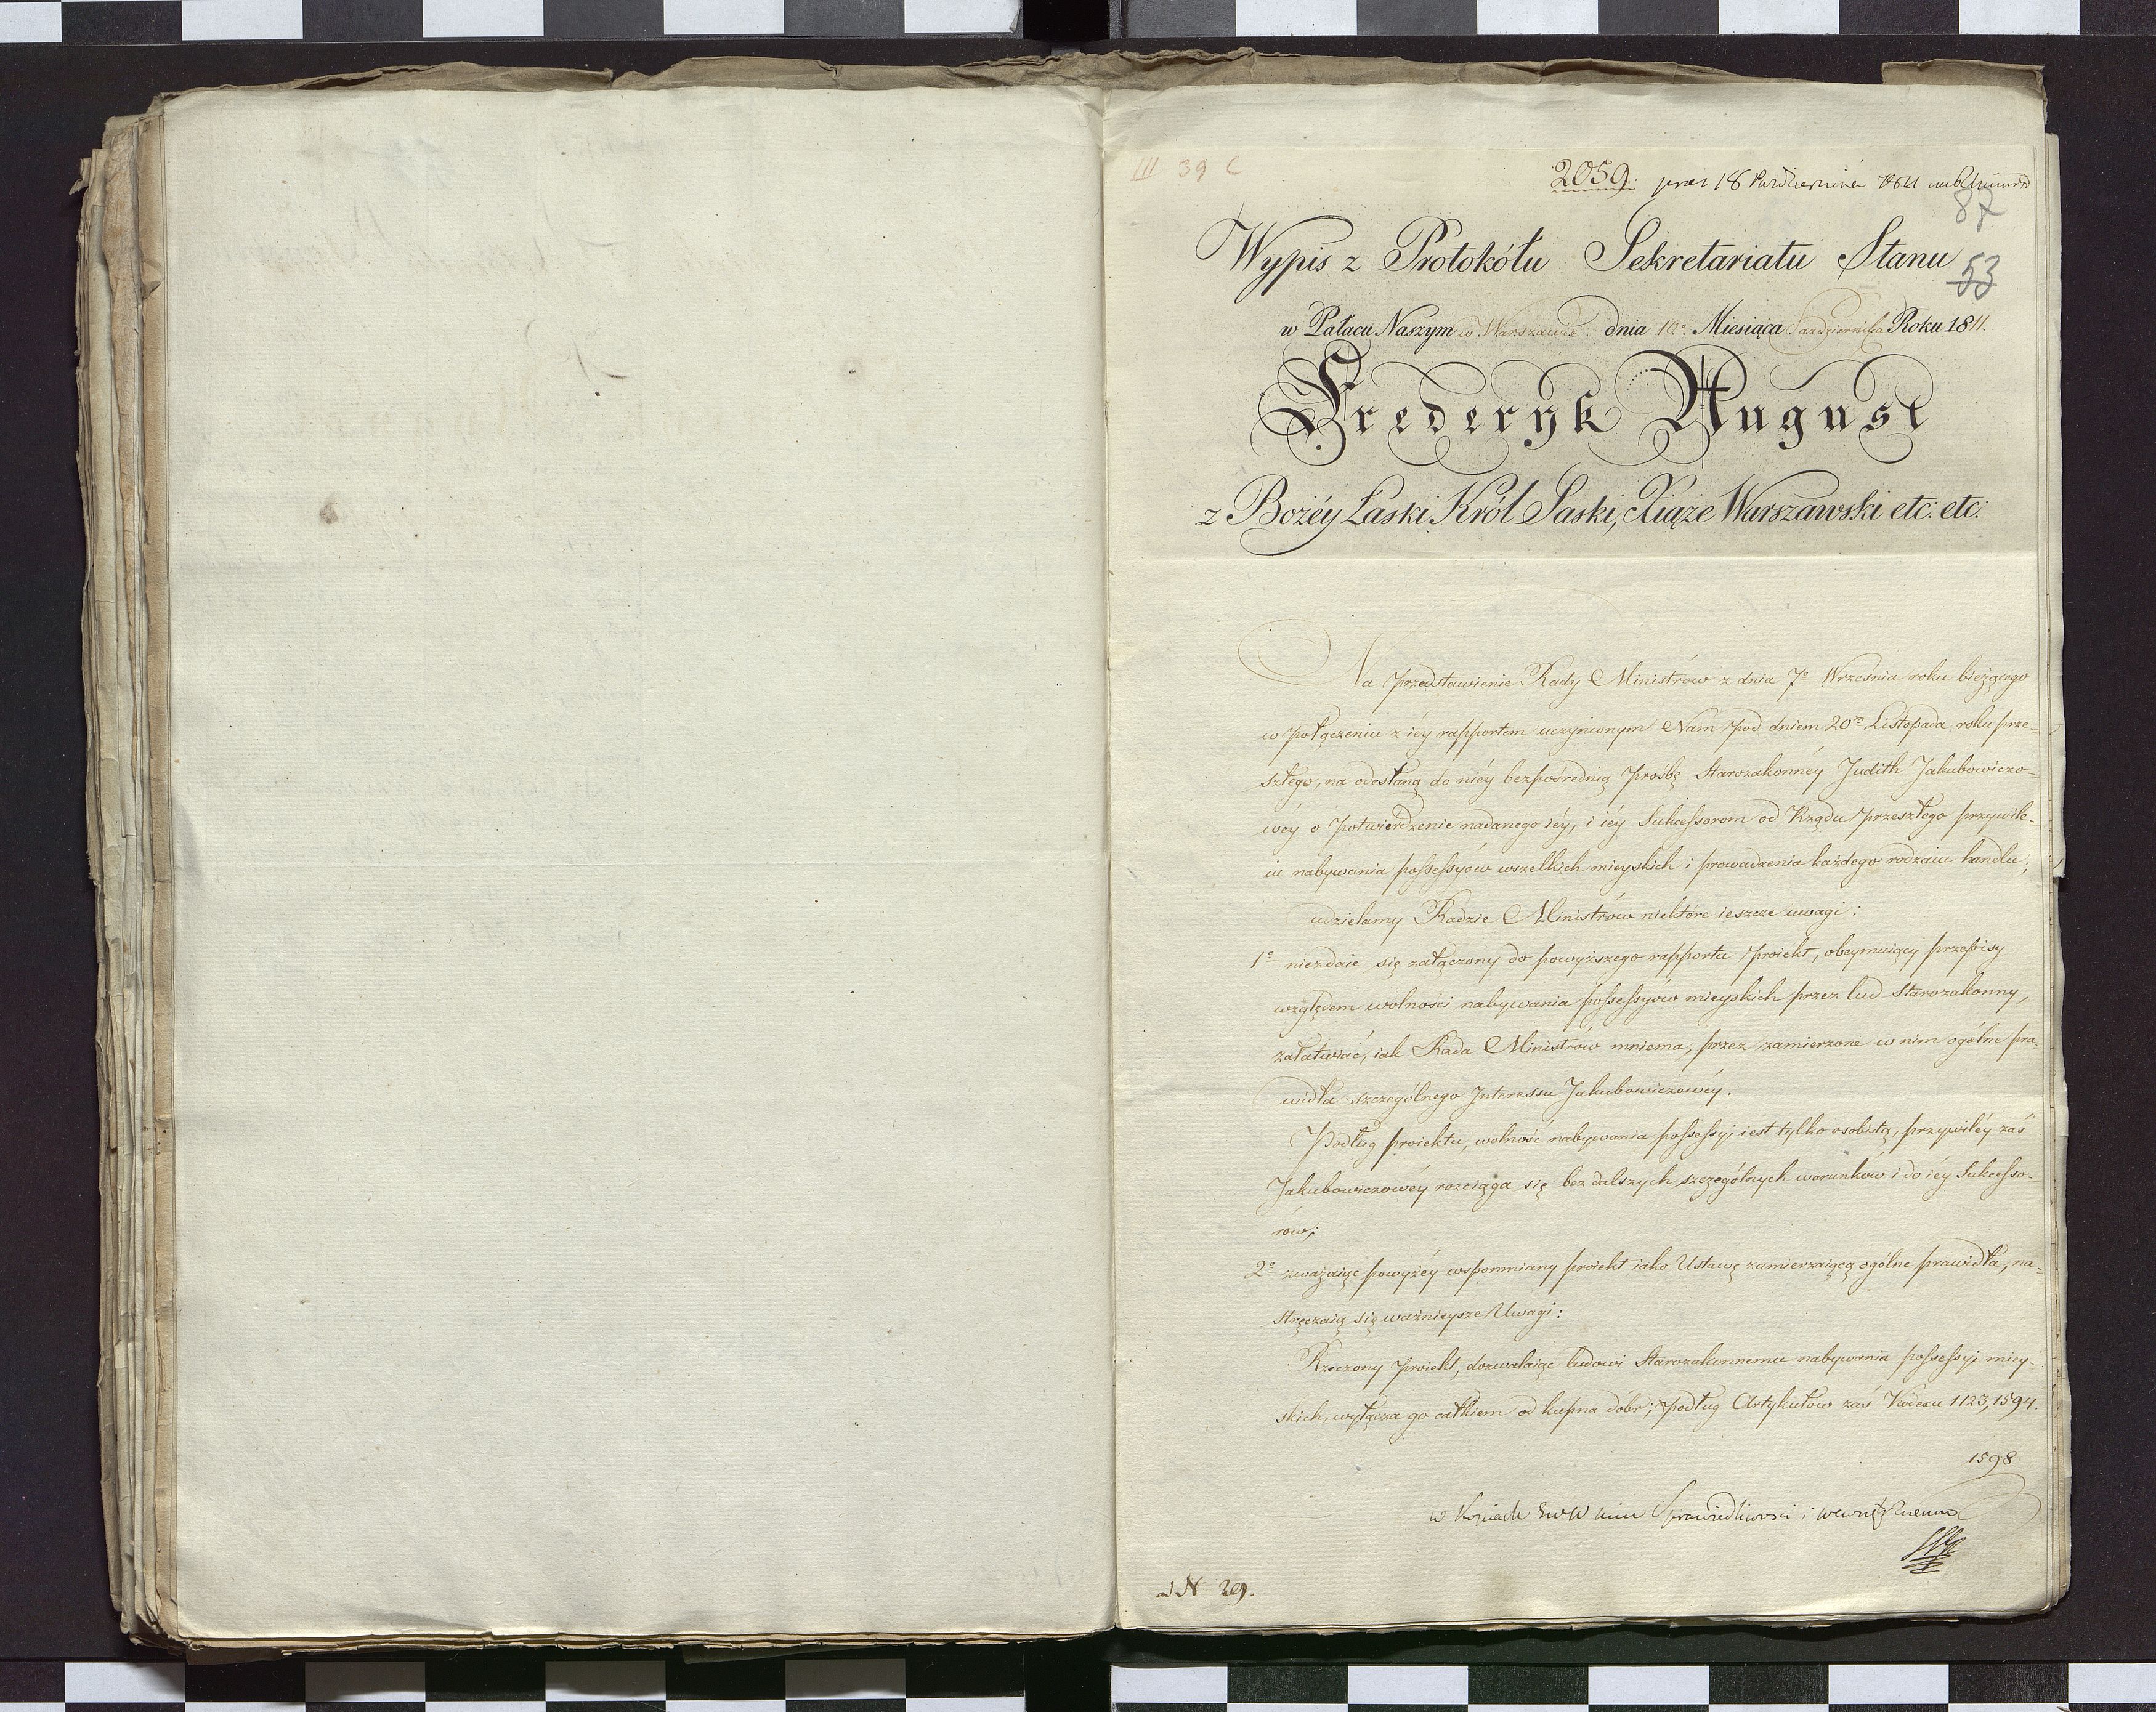 III 39 C
2059. 18 Października 1811
87
Wypis z Protokółu Sekretariatu Stanu
53
w Pałacu Naszym w Warszawie. dnia 10º. Miesiąca Października Roku 1811.
Frederyk August
z Bożéy Łaski Król Saski, Xiąże Warszawski etc: etc:
Na przedstawienie Rady Ministrów z dnia 7º Września roku bieżącego
w połączeniu z iéy rapportem uczynionym Nam pod dniem 20m Listopada roku prze-
szłego, na odesłaną do niéy bezpośrednią prośbę Starozakonnéy Judith Jakubowiczo-
wéy o potwierdzenie nadanego iéy, i iéy Sukcessorom od Rządu przeszłego przywile-
iu nabywania possessyów wszelkich mieyskich i prowadzenia każdego rodzaiu handlu;
udzielamy Radzie Ministrów niektóre ieszcze uwagi:
1e niezdaie się załączony do powyższego rapportu proiekt, obeymuiący przepisy
względem wolności nabywania possessyów mieyskich przez lud Starozakonny,
załatwiać, iak Rada Ministrów mniema, przez zamierzone w nim ogólne pra-
widła szczególnego Interessu Jakubowiczowéy.
Podług proiektu, wolność nabywania possessyi iest tylko osobistą, przywiléy zaś
Jakubowiczowéy rozciąga się bez dalszych szczególnych warunków i do iéy Sukcesso-
rów;
2e zważaiąc powyżéy wspomniany proiekt iako Ustawę zamierzaiącą ogólne prawidła, na-
stręczaią się ważnieysze Uwagi:
Rzeczony proiekt, dozwalaiąc ludowi Starozakonnemu nabywania possessyi miey-
skich, wyłącza go całkiem od kupna dóbr; podług Artykułów zaś Kodexu 1123, 1594.
1598
w Kopiach Sprawiedliwości i wewnętrznemu
ad N 29.